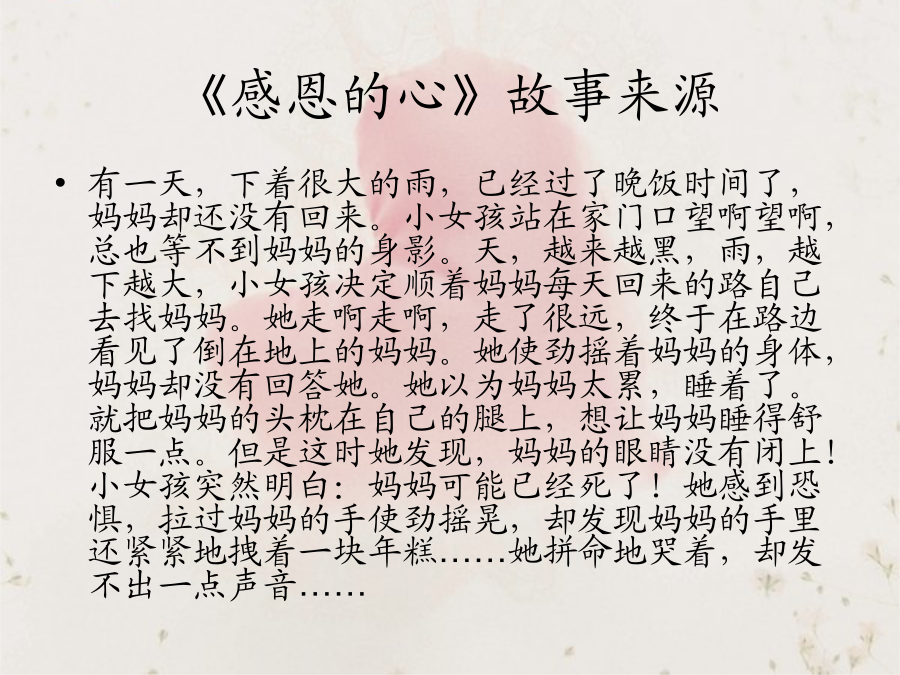 《感恩的心》故事来源
• 有一天，下着很大的雨，已经过了晚饭时间了，
妈妈却还没有回来。小女孩站在家门口望啊望啊，
总也等不到妈妈的身影。天，越来越黑，雨，越
下越大，小女孩决定顺着妈妈每天回来的路自己
去找妈妈。她走啊走啊，走了很远，终于在路边
看见了倒在地上的妈妈。她使劲摇着妈妈的身体，
妈妈却没有回答她。她以为妈妈太累，睡着了。
就把妈妈的头枕在自己的腿上，想让妈妈睡得舒
服一点。但是这时她发现，妈妈的眼睛没有闭上！
小女孩突然明白：妈妈可能已经死了！她感到恐
惧，拉过妈妈的手使劲摇晃，却发现妈妈的手里
还紧紧地拽着一块年糕……她拼命地哭着，却发
不出一点声音……